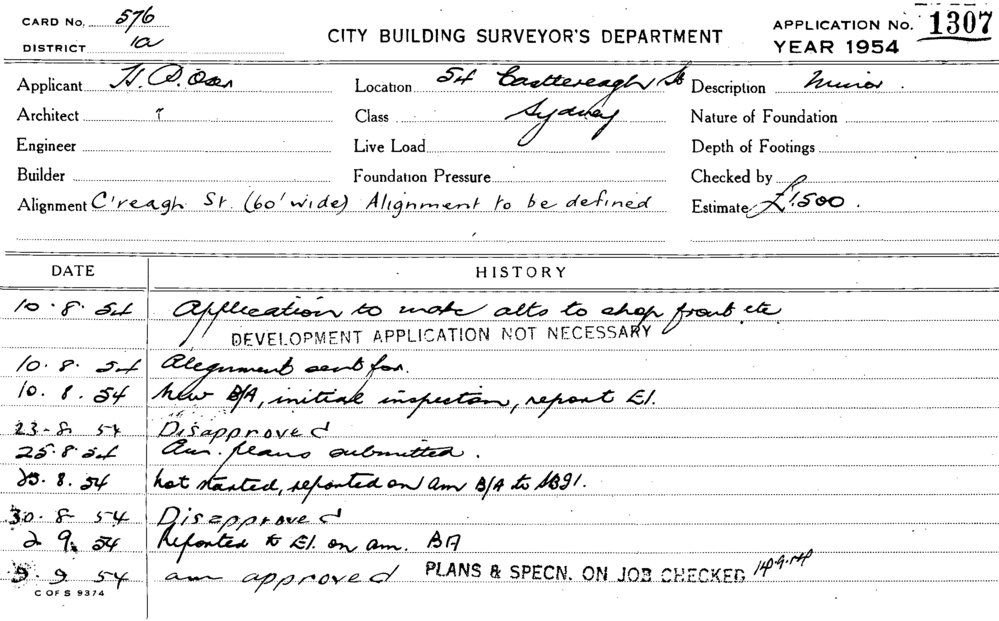 CARD No. 576
DISTRICT 1a
CITY BUILDING SURVEYOR'S DEPARTMENT
APPLICATION No. 1307
YEAR 1954
Applicant H. D. Oser Location 54 Castlereagh St Description Minor.
Architect Class Sydney Nature of Foundation
Engineer Live Load Depth of Footings
Builder Foundation Pressure Checked by
Alignment C'reagh St. (60' wide) Alignment to be defined Estimate £1,500.
DATE HISTORY
10.8.54 Application to make alts to shop front etc
DEVELOPMENT APPLICATION NOT NECESSARY
10.8.54 Alignment sent for.
10.8.54 New B/A, initial inspection, report E1.
23-8 54 Disapproved
25.8.54 Am. plans submitted.
25.8.54 Not started, reported on am B/A to
30-8 54 Disapproved
2 9. 54 Reported to E1. on am. BA
9.9 54 am approved PLANS & SPECN. ON JOB CHECKED 14.9.54
C OF S 9374